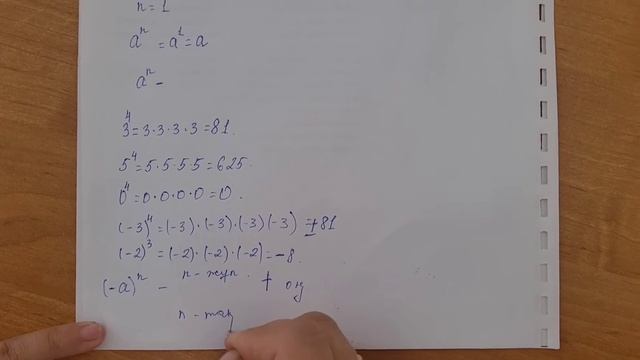 n = 1
aⁿ = a¹ = a
aⁿ –
3⁴ = 3·3·3·3 = 81.
5⁴ = 5·5·5·5 = 625.
0⁴ = 0·0·0·0 = 0.
(-3)⁴ = (-3)·(-3)·(-3)(-3) = +81
(-2)³ = (-2)·(-2)·(-2) = -8.
(-a)ⁿ – n - жұп. + оң
n - тақ